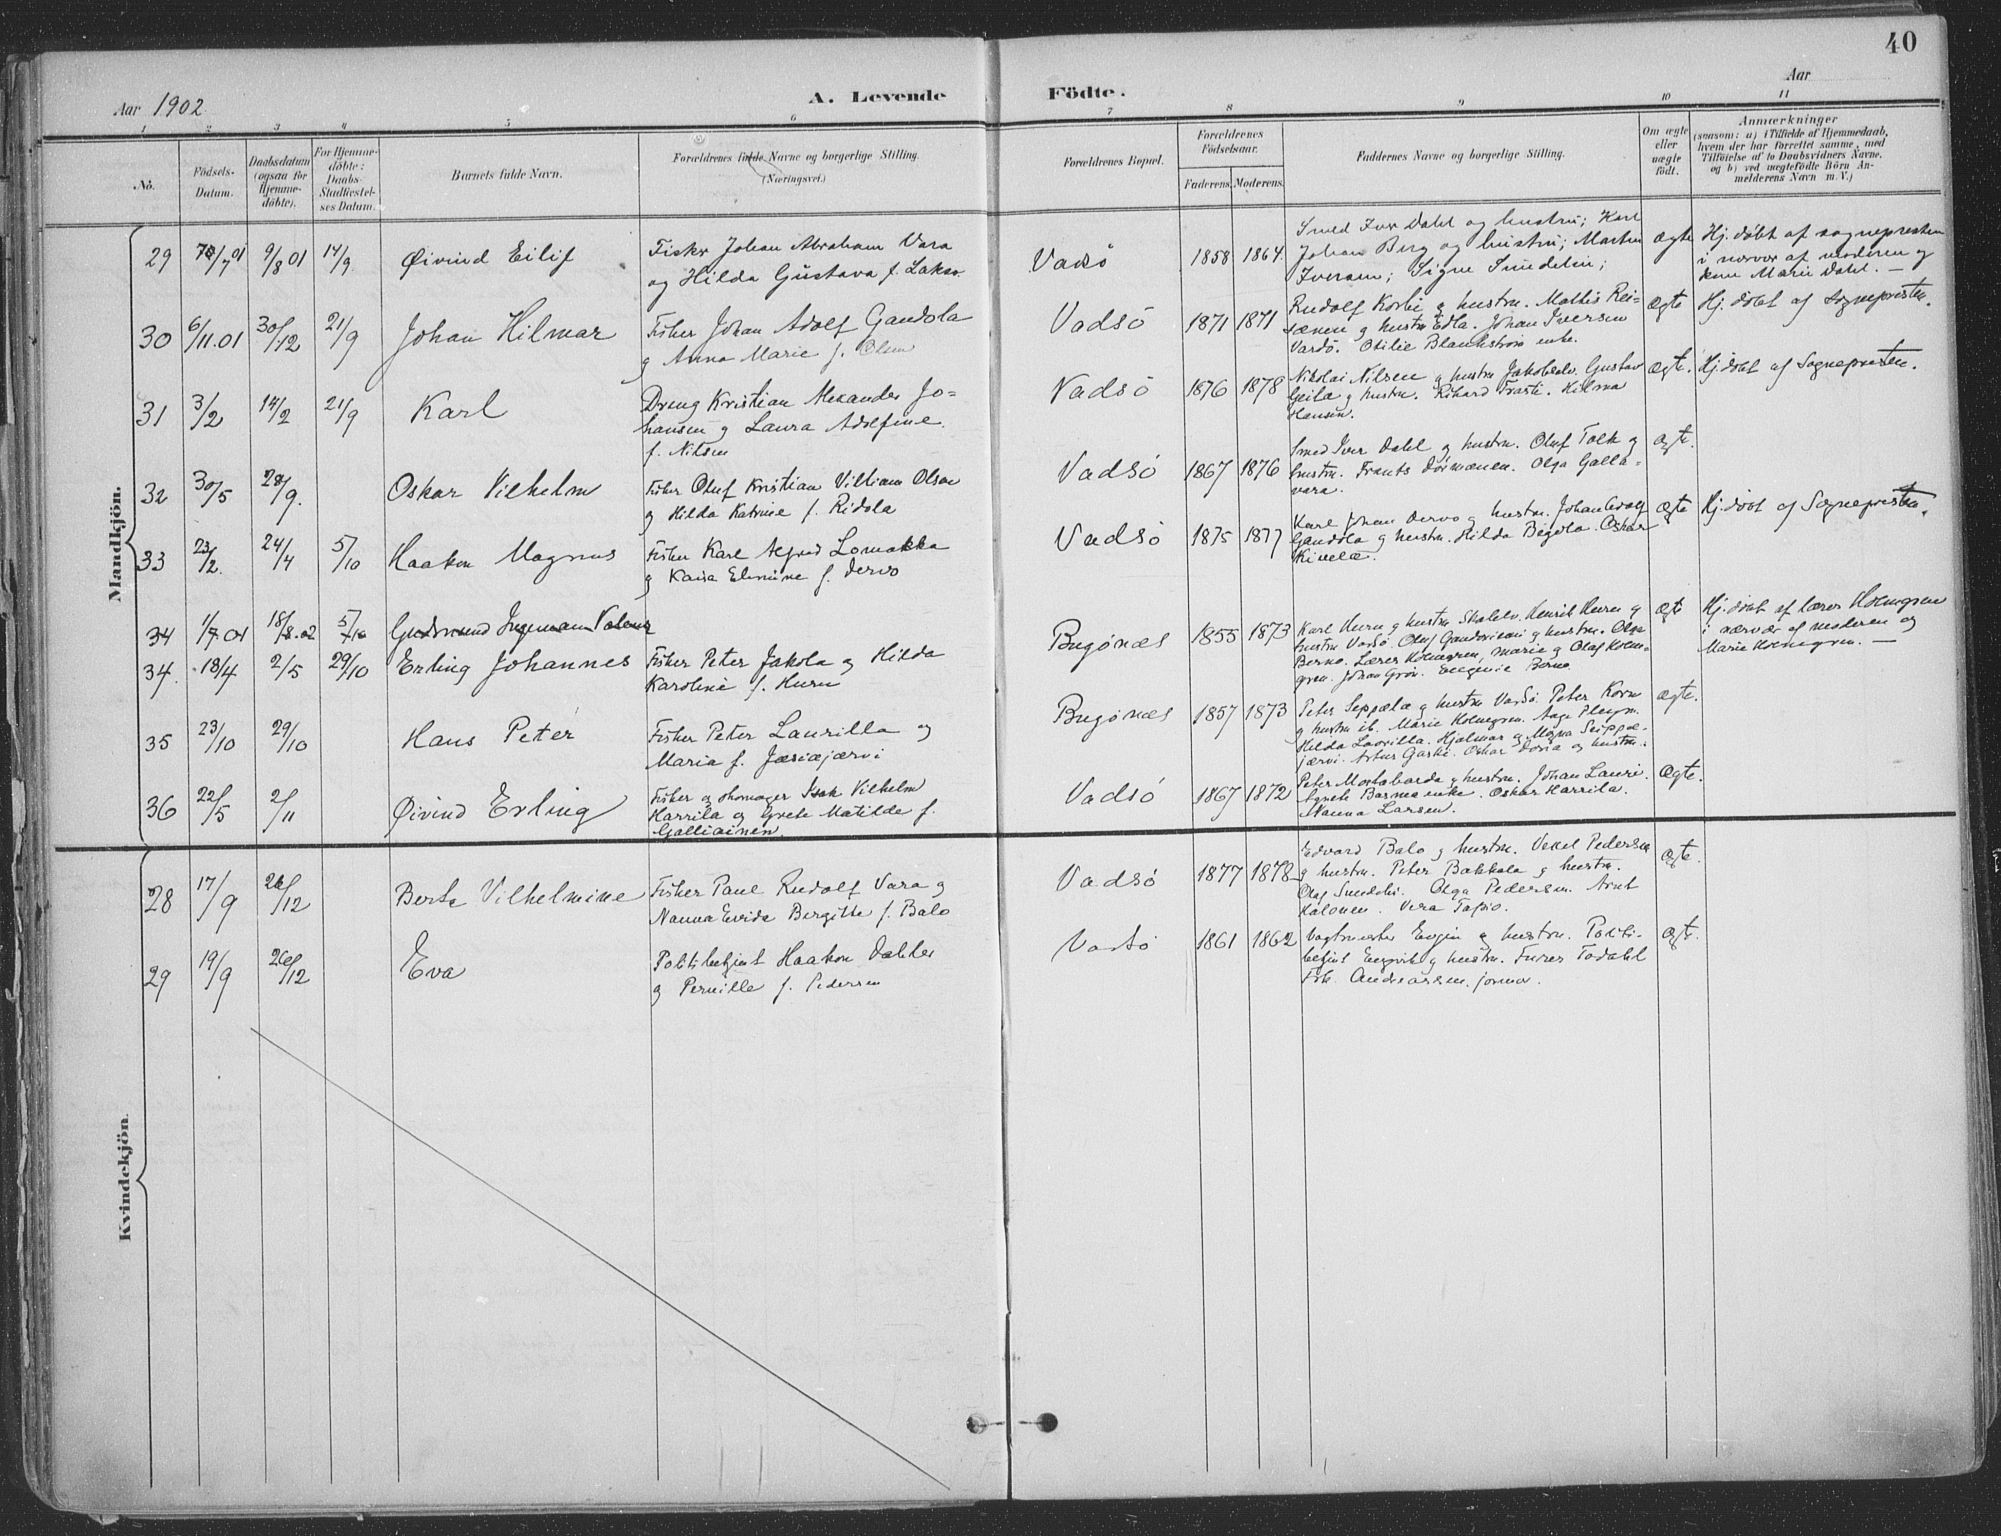 40
Aar 1902
A. Levende
Födte.
Aar
1 2 3 4 5 6 7 8 9 10 11
No.
Födsels-
Datum.
Daabsdatum
(ogsaa for
Hjemme-
döbte).
For Hjemme-
döbte:
Daabs-
Stadfæstel-
ses Datum.
Barnets fulde Navn.
Forældrenes fulde Navne og borgerlige Stilling.
(Næringsvei.)
Forældrenes Bopæl.
Forældrenes
Födselsaar.
Faderens. Moderens.
Faddernes Navne og borgerlige Stilling.
Om ægte
eller
uægte
födt.
Anmærkninger
(saasom: a) i Tilfælde af Hjemmedaab,
hvem der har forrettet samme, med
Tilföielse af to Daabsvidners Navne,
og b) ved uægtefödte Börn An-
melderens Navn m. V.)
Mandkjön.
29 /7 01 9/8 01 14/9 Øivind Eilif
Fisker Johan Abraham Vara
og Hilda Gustava f. Lakso
Vadsö 1858 1864
Smed Iver Dahl og hustru; Karl
Johan Berg og hustru; Marten
Iversen; Signe Sundelin;
ægte
Hj. döbt af sognepresten
i nærvær af moderen og
Marie Dahl. —
30 6/11.01 30/12 21/9 Johan Hilmar
Fisker Johan Adolf Gandola
g Anna Marie f. Olsen
Vadsö 1871 1871
Rudolf Korbi g hustru. Mattis Rei-
sænen g hustru Edla. Johan Iversen
Vardö. Otilie Blankström enke.
ægte
Hj. döbt af Sognepresten.
31 3/2 14/2 21/9 Karl
Dreng Kristian Alexander Jo-
hansen g Laura Adolfine
f. Nilsen
Vadsö 1876 1878
Nikolai Nilsen g hustru Jakobselv. Gustav
Geila g hustru. Rikard Trasti. Hilma
Hansen.
ægte.
Hj. döbt af Sognepresten.
32 30/5 28/9. Oskar Vilhelm
Fisker Oluf Kristian Villiam Olsen
g Hilda Katrine f. Ridola
Vadsö 1867 1876
Smed Iver Dahl g hustru. Oluf Talk g
hustru. Frants Dörmænen. Olga Galla-
vara.
ægte.
33 23/2. 24/4 5/10 Haakon Magnus
Fisker Karl Alfred Lomakka
g Kaisa Elemine f. Dervo
Vadsö 1875 1877
Karl Johan Dervo g hustru. Johan Adolf
Gandola g hustru. Hilda Begola. Oskar
Kivelæ.
ægte
Hj. döbt af Sognepresten.
34 1/7.01 18/8.02 5/10 Gudmund Ingeman
34. 18/4 2/5 29/10 Erling Johannes
Fisker Peter Jakola g Hilda
Karoline f. Huru
Bugönæs 1855 1873
Karl Huru g hustru Skalelv. Henrik Huru g
hustru Vadsö. Oluf g hustru. Olga
Berno. Lærer Holmgren, Marie g Olaf Holm-
gren. Johan Grön. Eugenie Berno.
ægte
Hj. döbt af lærer Holmgren
i nærvær af moderen og
Marie Holmgren. —
35 23/10 29/10 Hans Peter
Fisker Peter Laurilla og
Maria f. Jæsiæjærvi
Bugönæs 1857 1873
Peter Seppælæ g hustru Vadsö. Peter Korvo
g hustru ib. Marie Holmgren. Aage
Hilda Laurilla. Hjalmar g Seippæ-
jærvi. Artur Oskar g hustru.
ægte.
36 22/5 2/11 Øivind Erling
Fisker og skomager Isak Vilhelm
Harrila og Grete Matilde f.
Galliainen.
Vadsö 1867 1872
Peter Mortabarda g hustru. Johan Lauri.
Agnete enke. Oskar Harrila.
Nanna Larsen.
ægte.
Kvindekjön.
28 17/9 26/12 Berte Vilhelmine
Fisker Paul Rudolf Vara g
Nanna Bergitte f. Balo
Vadsö 1877 1878
Edvard Balo g hustru. Pedersen
g hustru. Peter Bakkala g hustru.
Olaf Sundelin. Olga Pedersen. Arnt
Halonen. Vera Tapio.
ægte.
29 19/9 26/12 Eva
Politibetjent Haakon
g Pernille f. Pedersen
Vadsö 1861 1862
Vagtmester g hustru. Politi-
betjent Engvik g hustru. Todahl
Frk. Andreassen.
ægte.